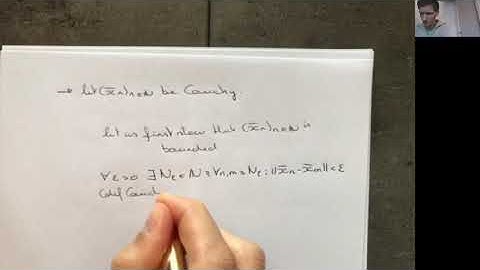 → let (x̄n)n∈ℕ be Cauchy.
let us first show that (x̄n)n∈ℕ is
bounded
∀ε>0 ∃Nε∈ℕ: ∀n,m≥Nε: ||x̄n-x̄m||<ε
(def Cauch